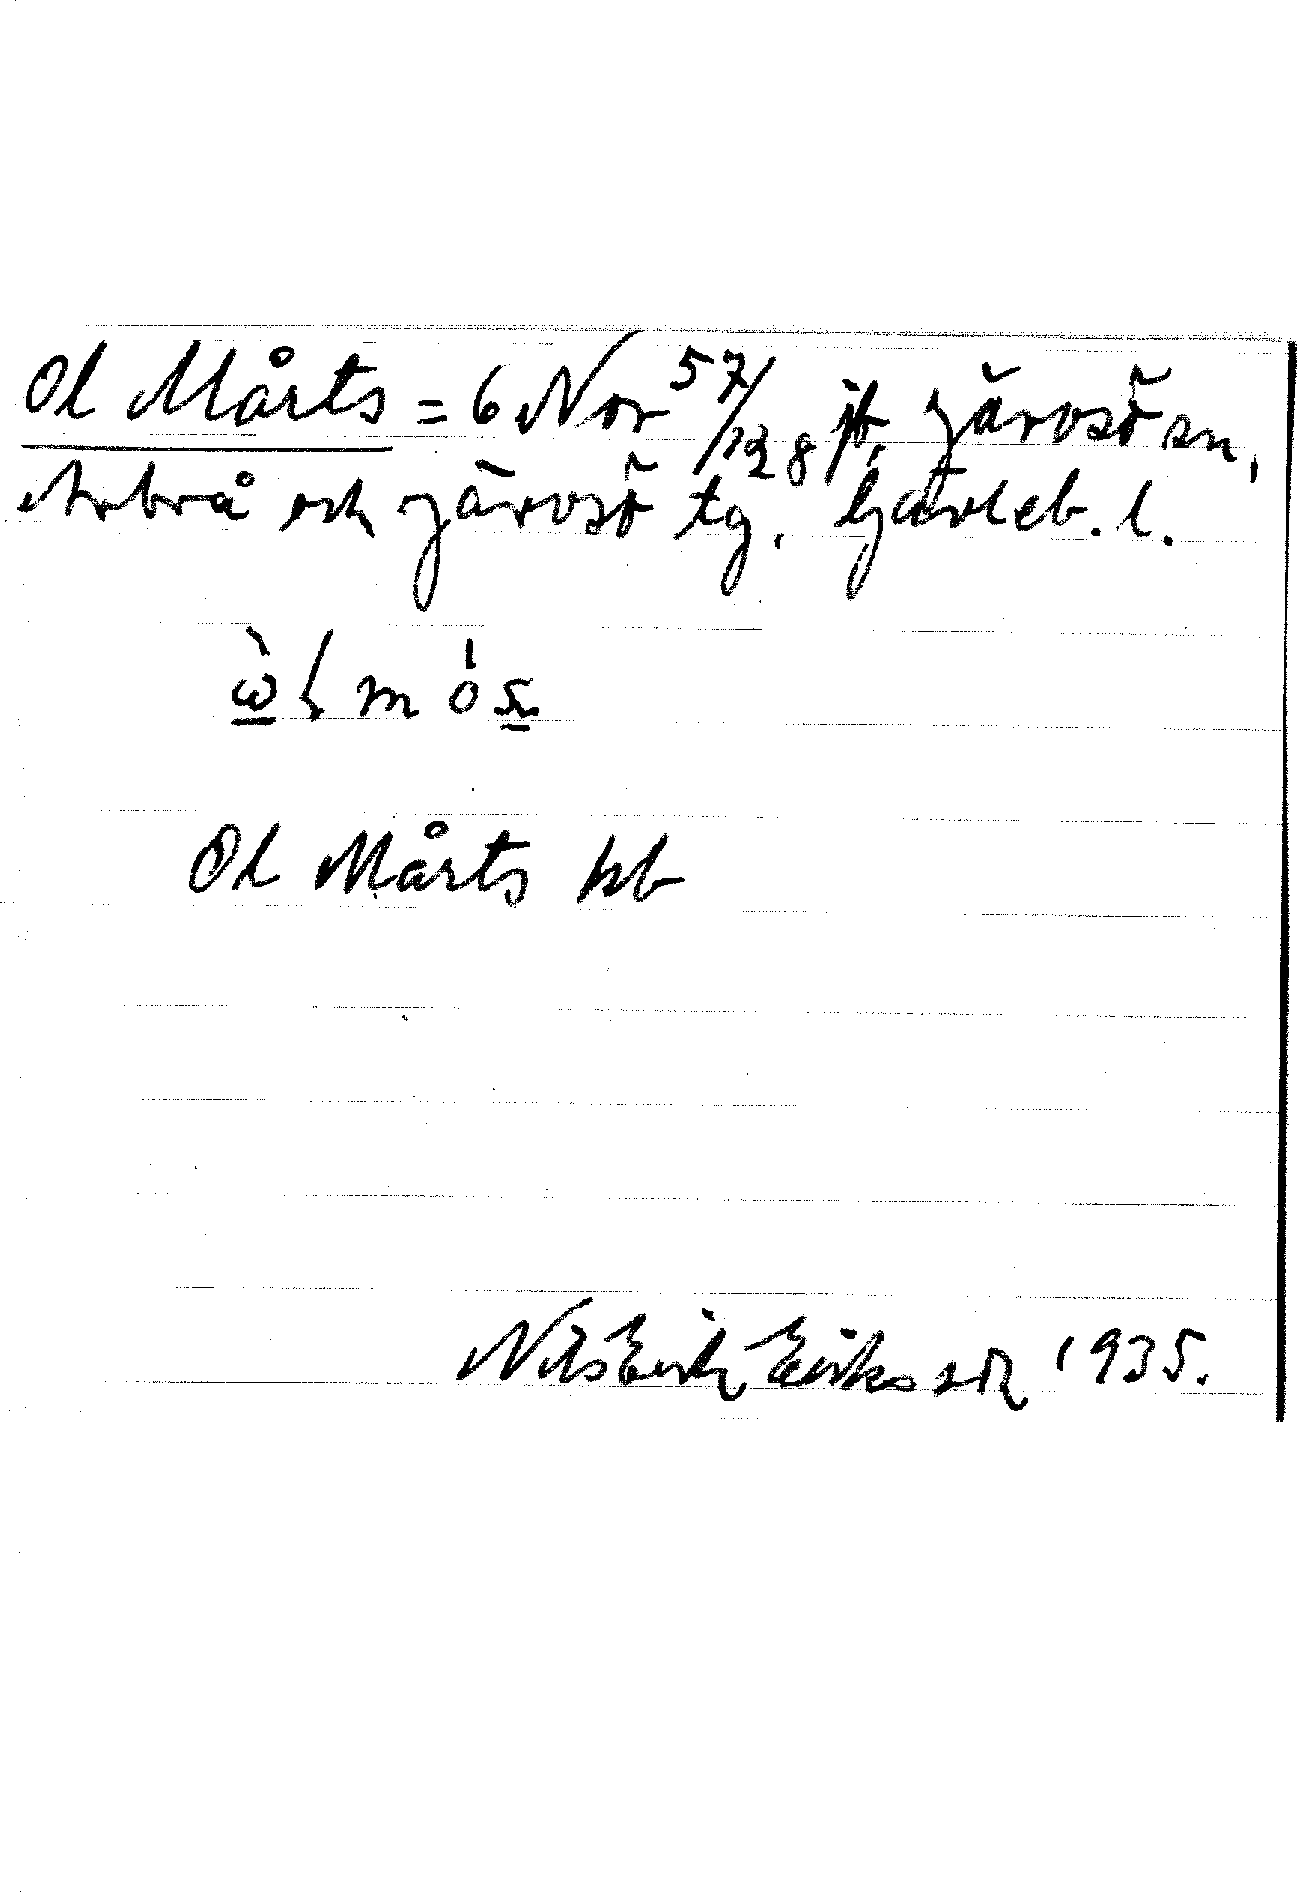 Ol Mårts = 6 Nor 57/128 jb, Järvsö sn,
Arbrå och Järvsö tg. Gävleb. l.
Ol Mårts hb
Nils Erik Eriksson 1935.